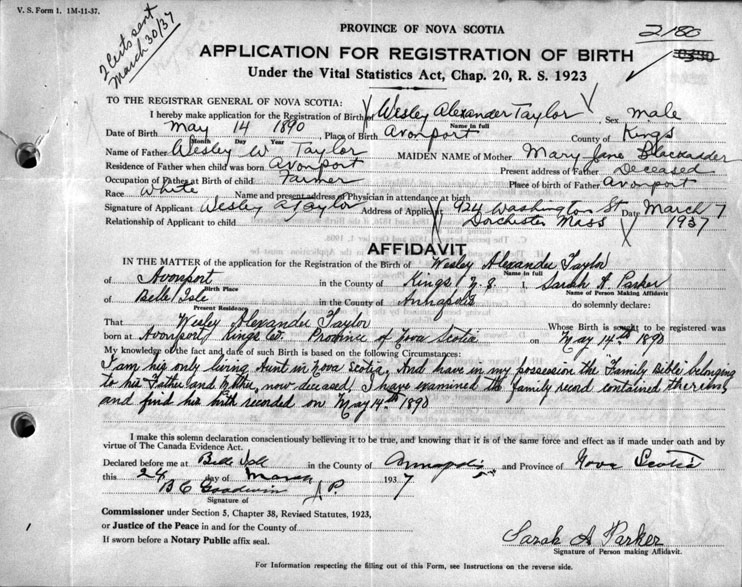 V. S. Form 1. 1M-11-37.
2 Certs sent
March 30/37
PROVINCE OF NOVA SCOTIA
2180
APPLICATION FOR REGISTRATION OF BIRTH
Under the Vital Statistics Act, Chap. 20, R. S. 1923
TO THE REGISTRAR GENERAL OF NOVA SCOTIA:
I hereby make application for the Registration of Birth of Wesley Alexander Taylor, Sex Male
Name in full
Date of Birth May 14 1890, Place of Birth Avonport County of Kings
Month Day Year
Name of Father Wesley W. Taylor MAIDEN NAME of Mother Mary Jane Blackadder
Residence of Father when child was born Avonport Present address of Father Deceased
Occupation of Father at Birth of child Farmer Place of birth of Father Avonport
Race White Name and present address of Physician in attendance at birth
Signature of Applicant Wesley A Taylor Address of Applicant 924 Washington St Date March 7
Relationship of Applicant to child Dorchester Mass 1937
AFFIDAVIT
IN THE MATTER of the application for the Registration of the Birth of Wesley Alexander Taylor
of Avonport in the County of Kings N.S. I, Sarah A. Parker
Birth Place Name of Person Making Affidavit
of Belle Isle in the County of Annapolis do solemnly declare:
Present Residence
That Wesley Alexander Taylor Whose Birth is sought to be registered was
born at Avonport Kings Co. Province of Nova Scotia on May 14th 1890
My knowledge of the fact and date of such Birth is based on the following Circumstances:
I am his only living Aunt in Nova Scotia, And have in my possession the Family Bible belonging
to his Father and Mother, now deceased, I have examined the family record contained therein,
and find his birth recorded on May 14th 1890
I make this solemn declaration conscientiously believing it to be true, and knowing that it is of the same force and effect as if made under oath and by
virtue of The Canada Evidence Act.
Declared before me at Belle Isle in the County of Annapolis, and Province of Nova Scotia
this 24 day of March 1937
B C Goodwin J.P.
Signature of
Commissioner under Section 5, Chapter 38, Revised Statutes, 1923,
or Justice of the Peace in and for the County of
If sworn before a Notary Public affix seal.
Sarah A Parker
Signature of Person making Affidavit.
For Information respecting the filling out of this Form, see Instructions on the reverse side.